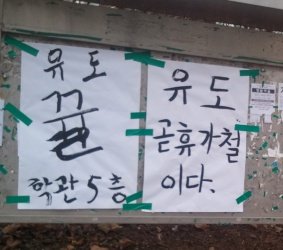 유도
학관 5층
유도
곧휴가철
이다.